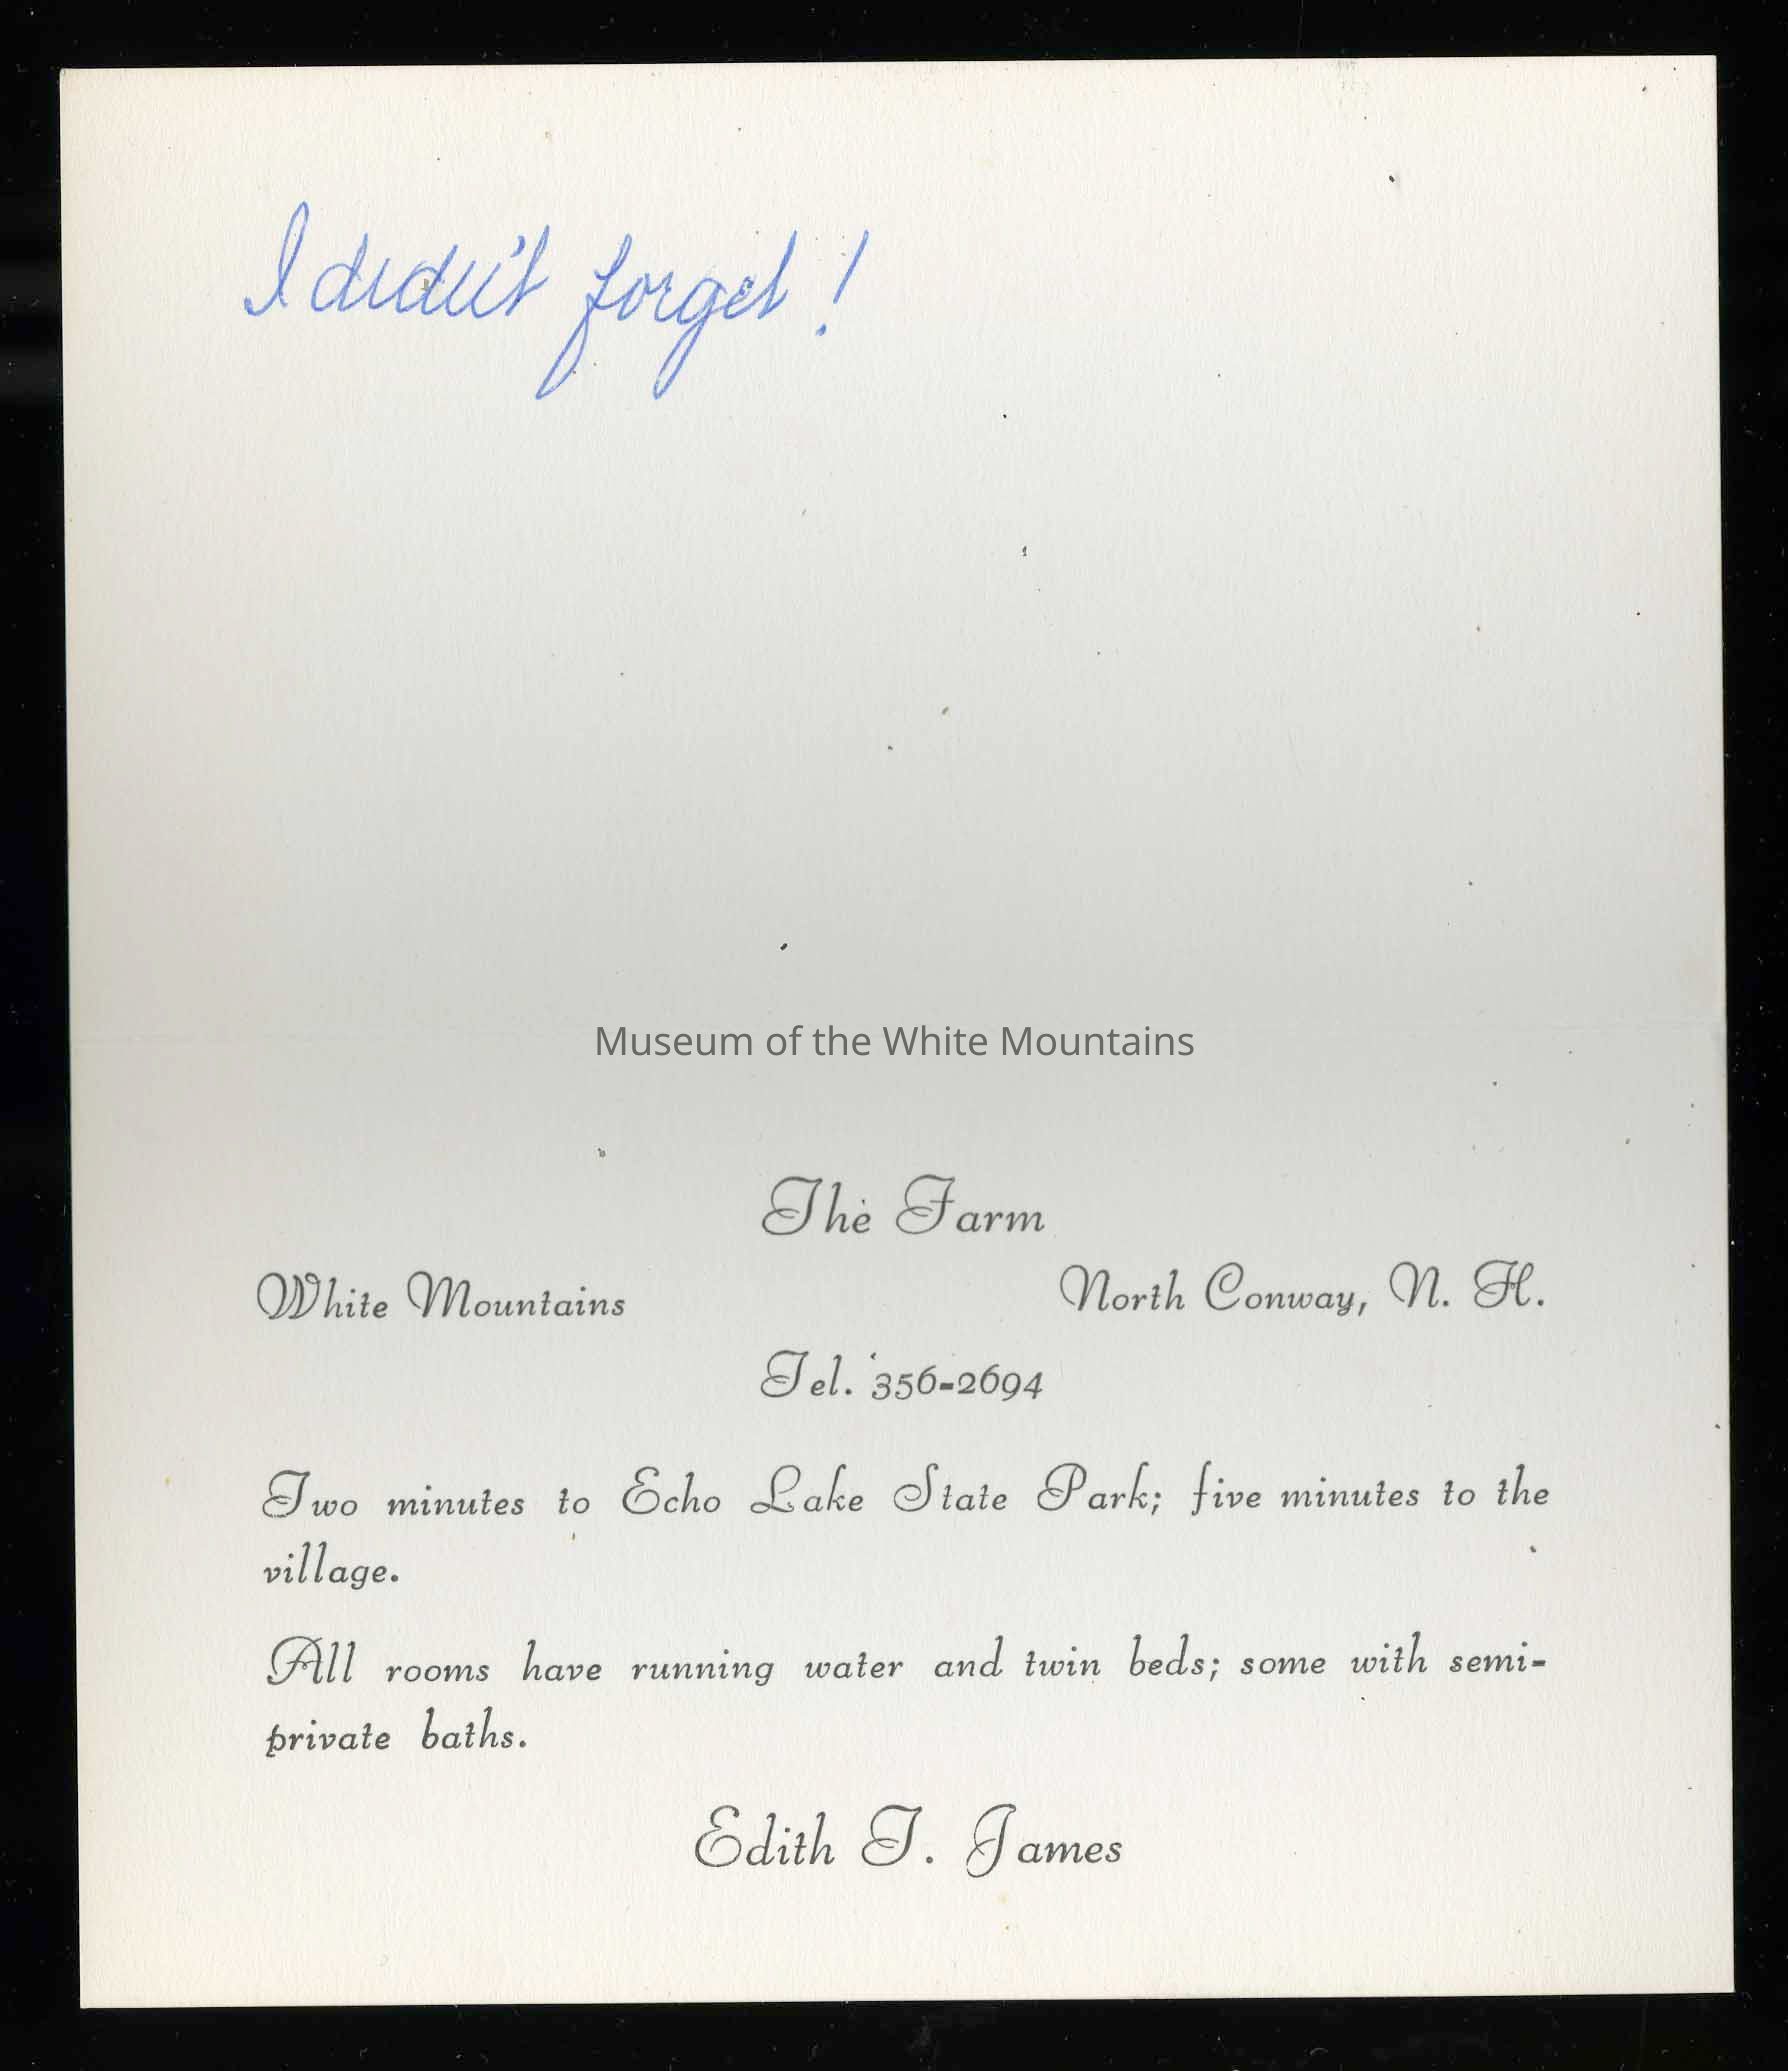 I didn't forget!
Museum of the White Mountains
The Farm
White Mountains North Conway, N. H.
Tel. 356-2694
Two minutes to Echo Lake State Park; five minutes to the
village.
All rooms have running water and twin beds; some with semi-
private baths.
Edith T. James